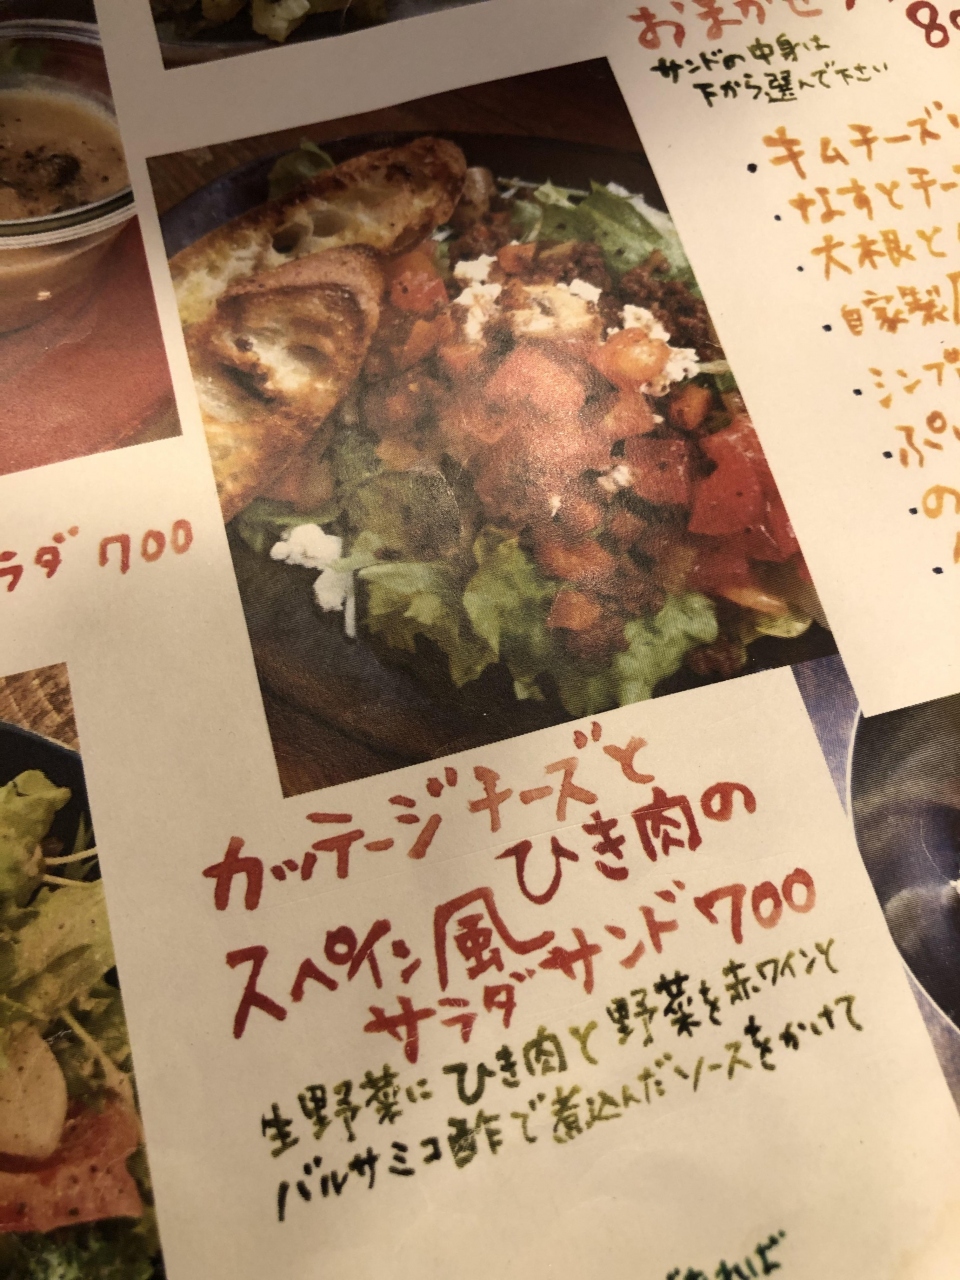 おまかせ
サンドの中身は
下から選んで下さい
・キムチーズ
・なすとチー
・大根と
・自家製
・シンプ
・ぷ
・の
ラダ 700
カッテージチーズと
ひき肉の
スペイン風
サラダサンド 700
生野菜にひき肉と野菜を赤ワインと
バルサミコ酢で煮込んだソースをかけて